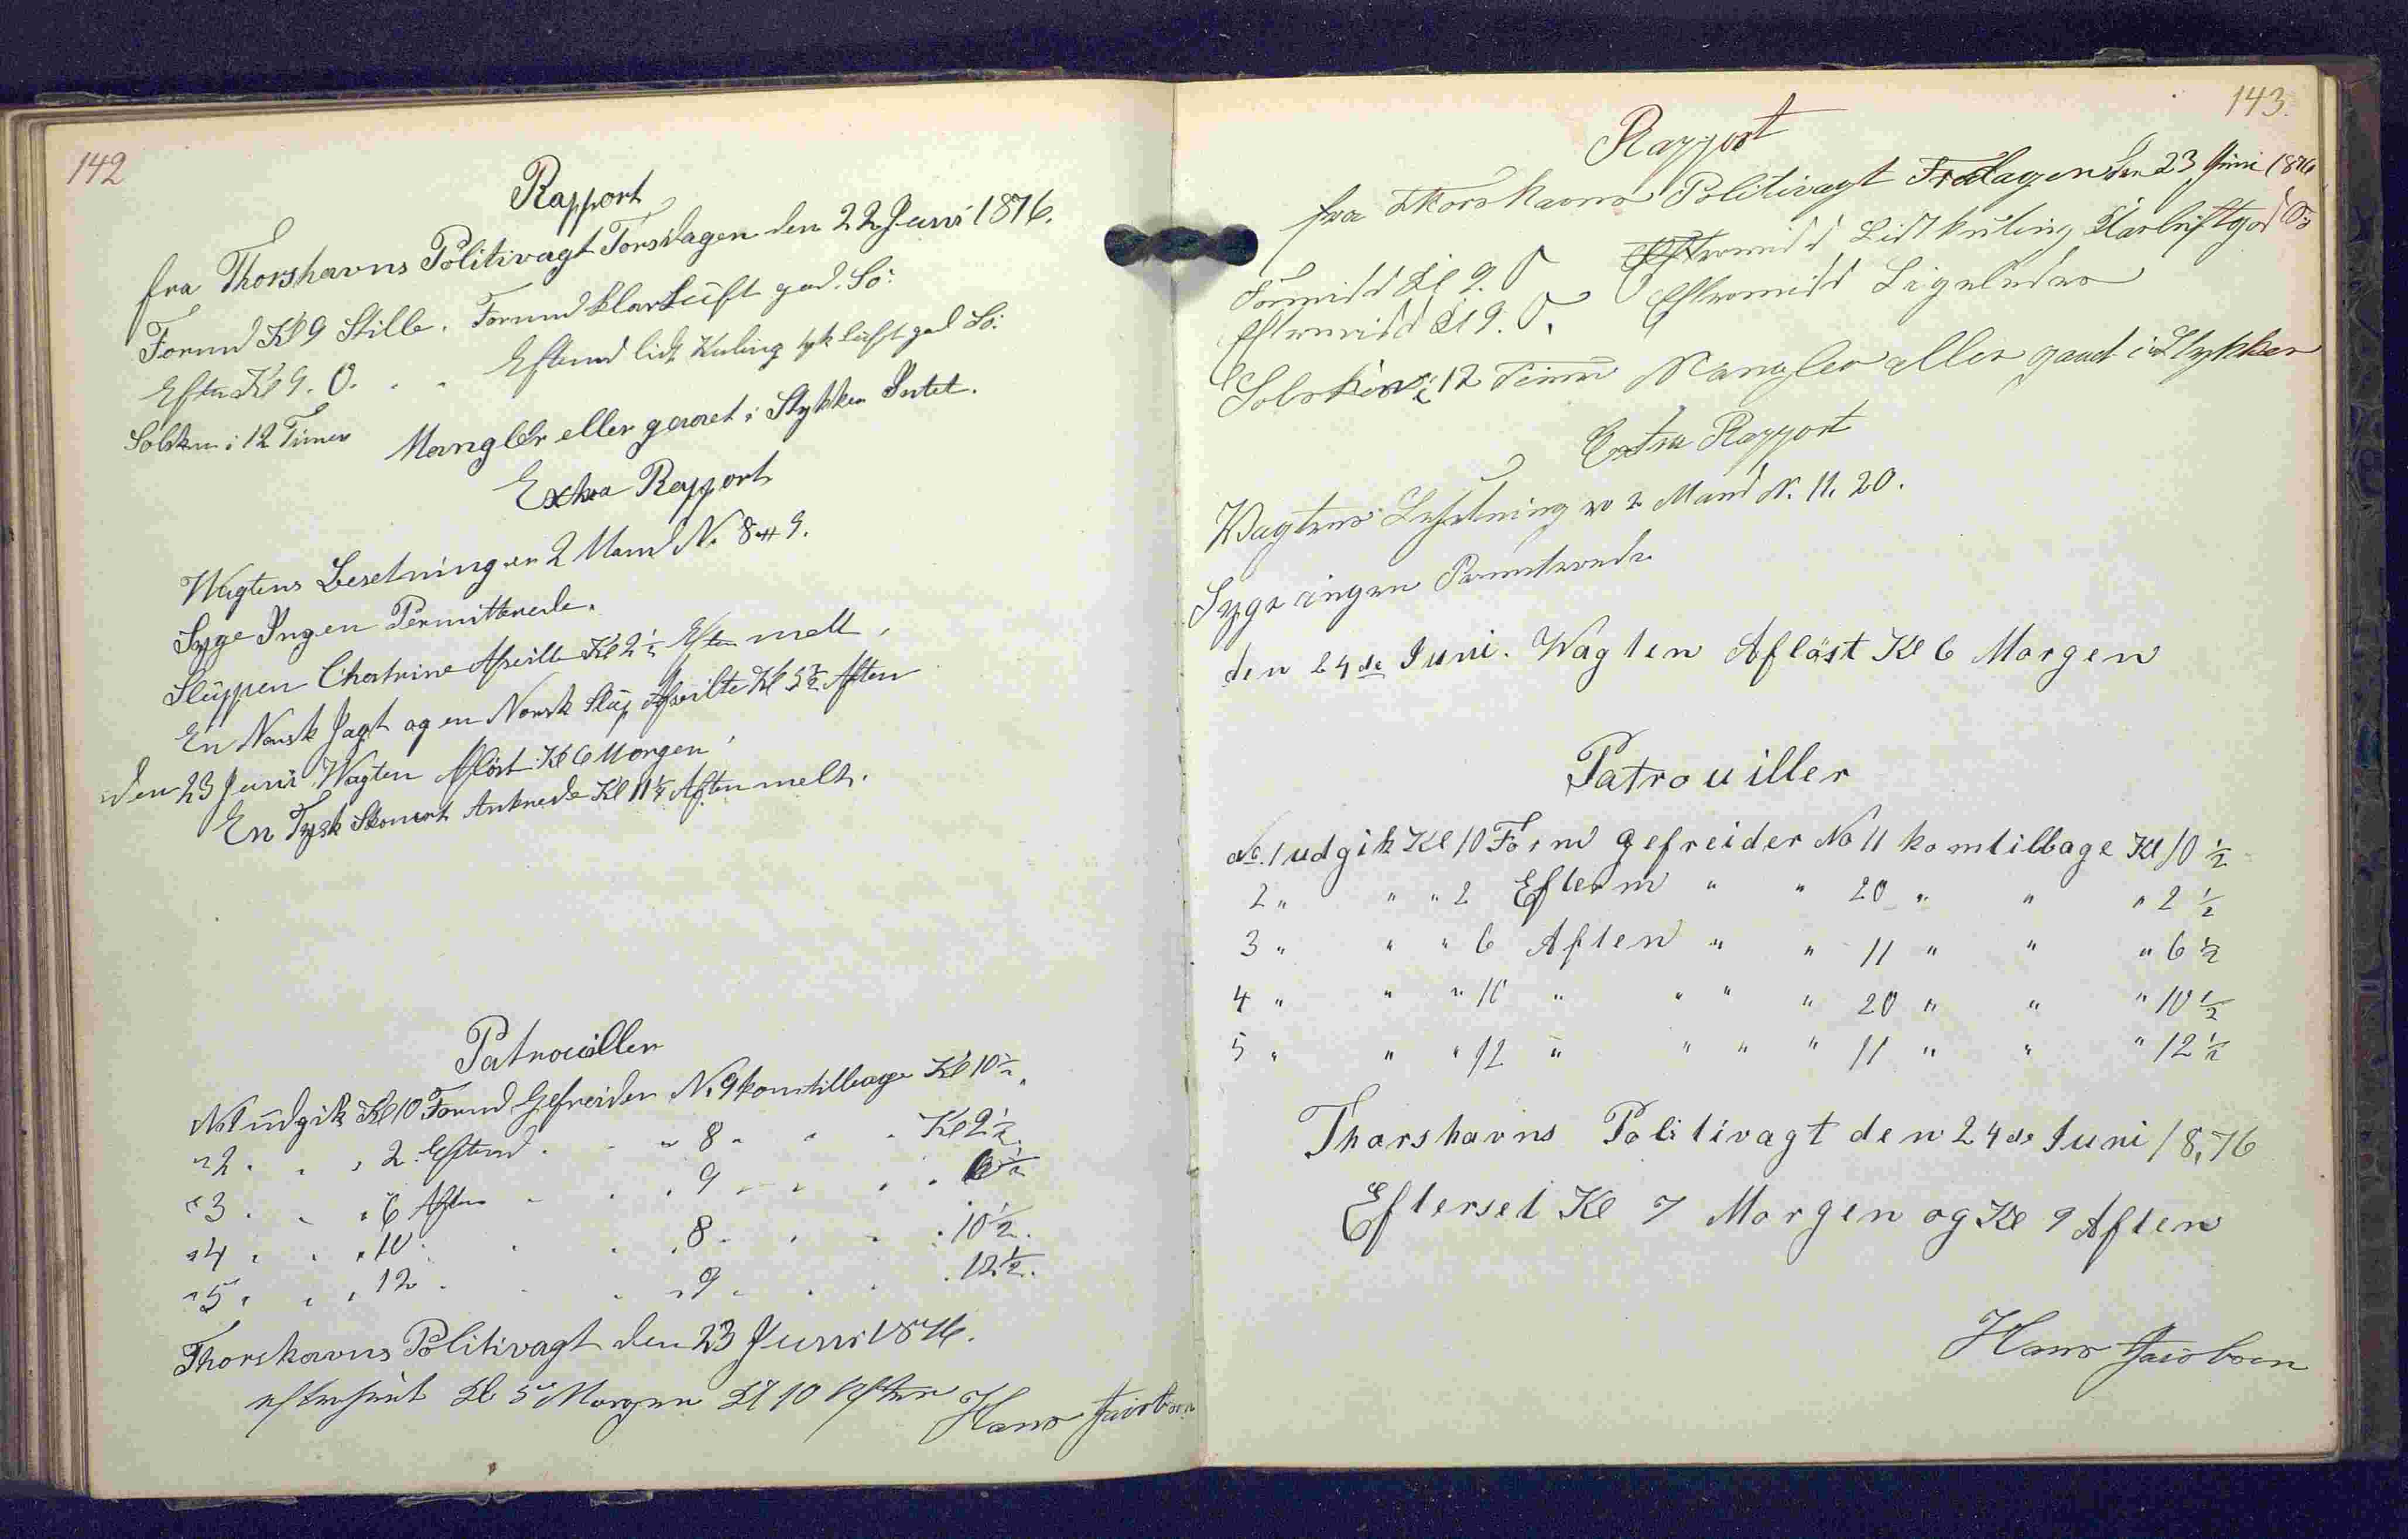 142
Rapport
fra Thorshavns Politivagt Torsdagen den 22 Juni 1876.
Formd Kl 9 Stille. Formd klar Luft god Sö.
Eftm Kl 9. O. " " Eftmd lidt Kuling tyk luft god Sö.
Solskin i 12 Timer Mangler eller gaaet i Stykker Intet.
Extra Rapport
Wagtens Besetning er 2 Mand No 8 & 9.
Syge Ingen Permitterede.
Slüppen Chatrine Afseilte Kl 2 1/2 Eften melt,
En Norsk Jagt og en Norsk Slup Afseilte Kl 5 1/2 Aften
den 23 Juni Wagten Aflöst Kl 6 Morgen
En Tysk Skonnert Ankrede Kl 11 1/4 Aften melt.
Patrouiller
No 1 udgik Kl 10 Formd Gefreider No 9 kom tilbage Kl 10 1/2
" 2 " " " 2 Eftmd " " " 8 " " " Kl 2 1/2
" 3 " " " 6 Aften " " " 9 " " " " 6 1/2
" 4 " " " 10 " " " 8 " " " " 10 1/2
" 5 " " " 12 " " " 9 " " " " 12 1/2
Thorshavns Politivagt den 23 Juni 1876.
efterseet Kl 5 Morgen Kl 10 Aften Hans Jacobsen
143.
Rapport
fra Thorshavns Politivagt Fredagen den 23 Juni 1876
Formidd Kl 9. O Lidt kuling klarluft god Sö
Eftermidd Kl 9. O. Eftermidd Ligeledes
Solskin i 12 Timer Mangler eller gaaet i Stykker
Extra Rapport
Wagtens Besetning er 2 Mand N. 11. 20.
Syge ingen Permiterede
den 24de Juni. Wagten Aflöst Kl 6 Morgen
Patrouiller
No. 1 udgik Kl 10 Form gefreider No 11 kom tilbage Kl 10 1/2
2 " " " 2 Efterm " " 20 " " " 2 1/2
3 " " " 6 Aften " " 11 " " " 6 1/2
4 " " " 10 " " " " 20 " " " 10 1/2
5 " " " 12 " " " " 11 " " " 12 1/2
Thorshavns Politivagt den 24de Juni 1876
Efterset Kl 7 Morgen og Kl 9 Aften
Hans Jacobsen